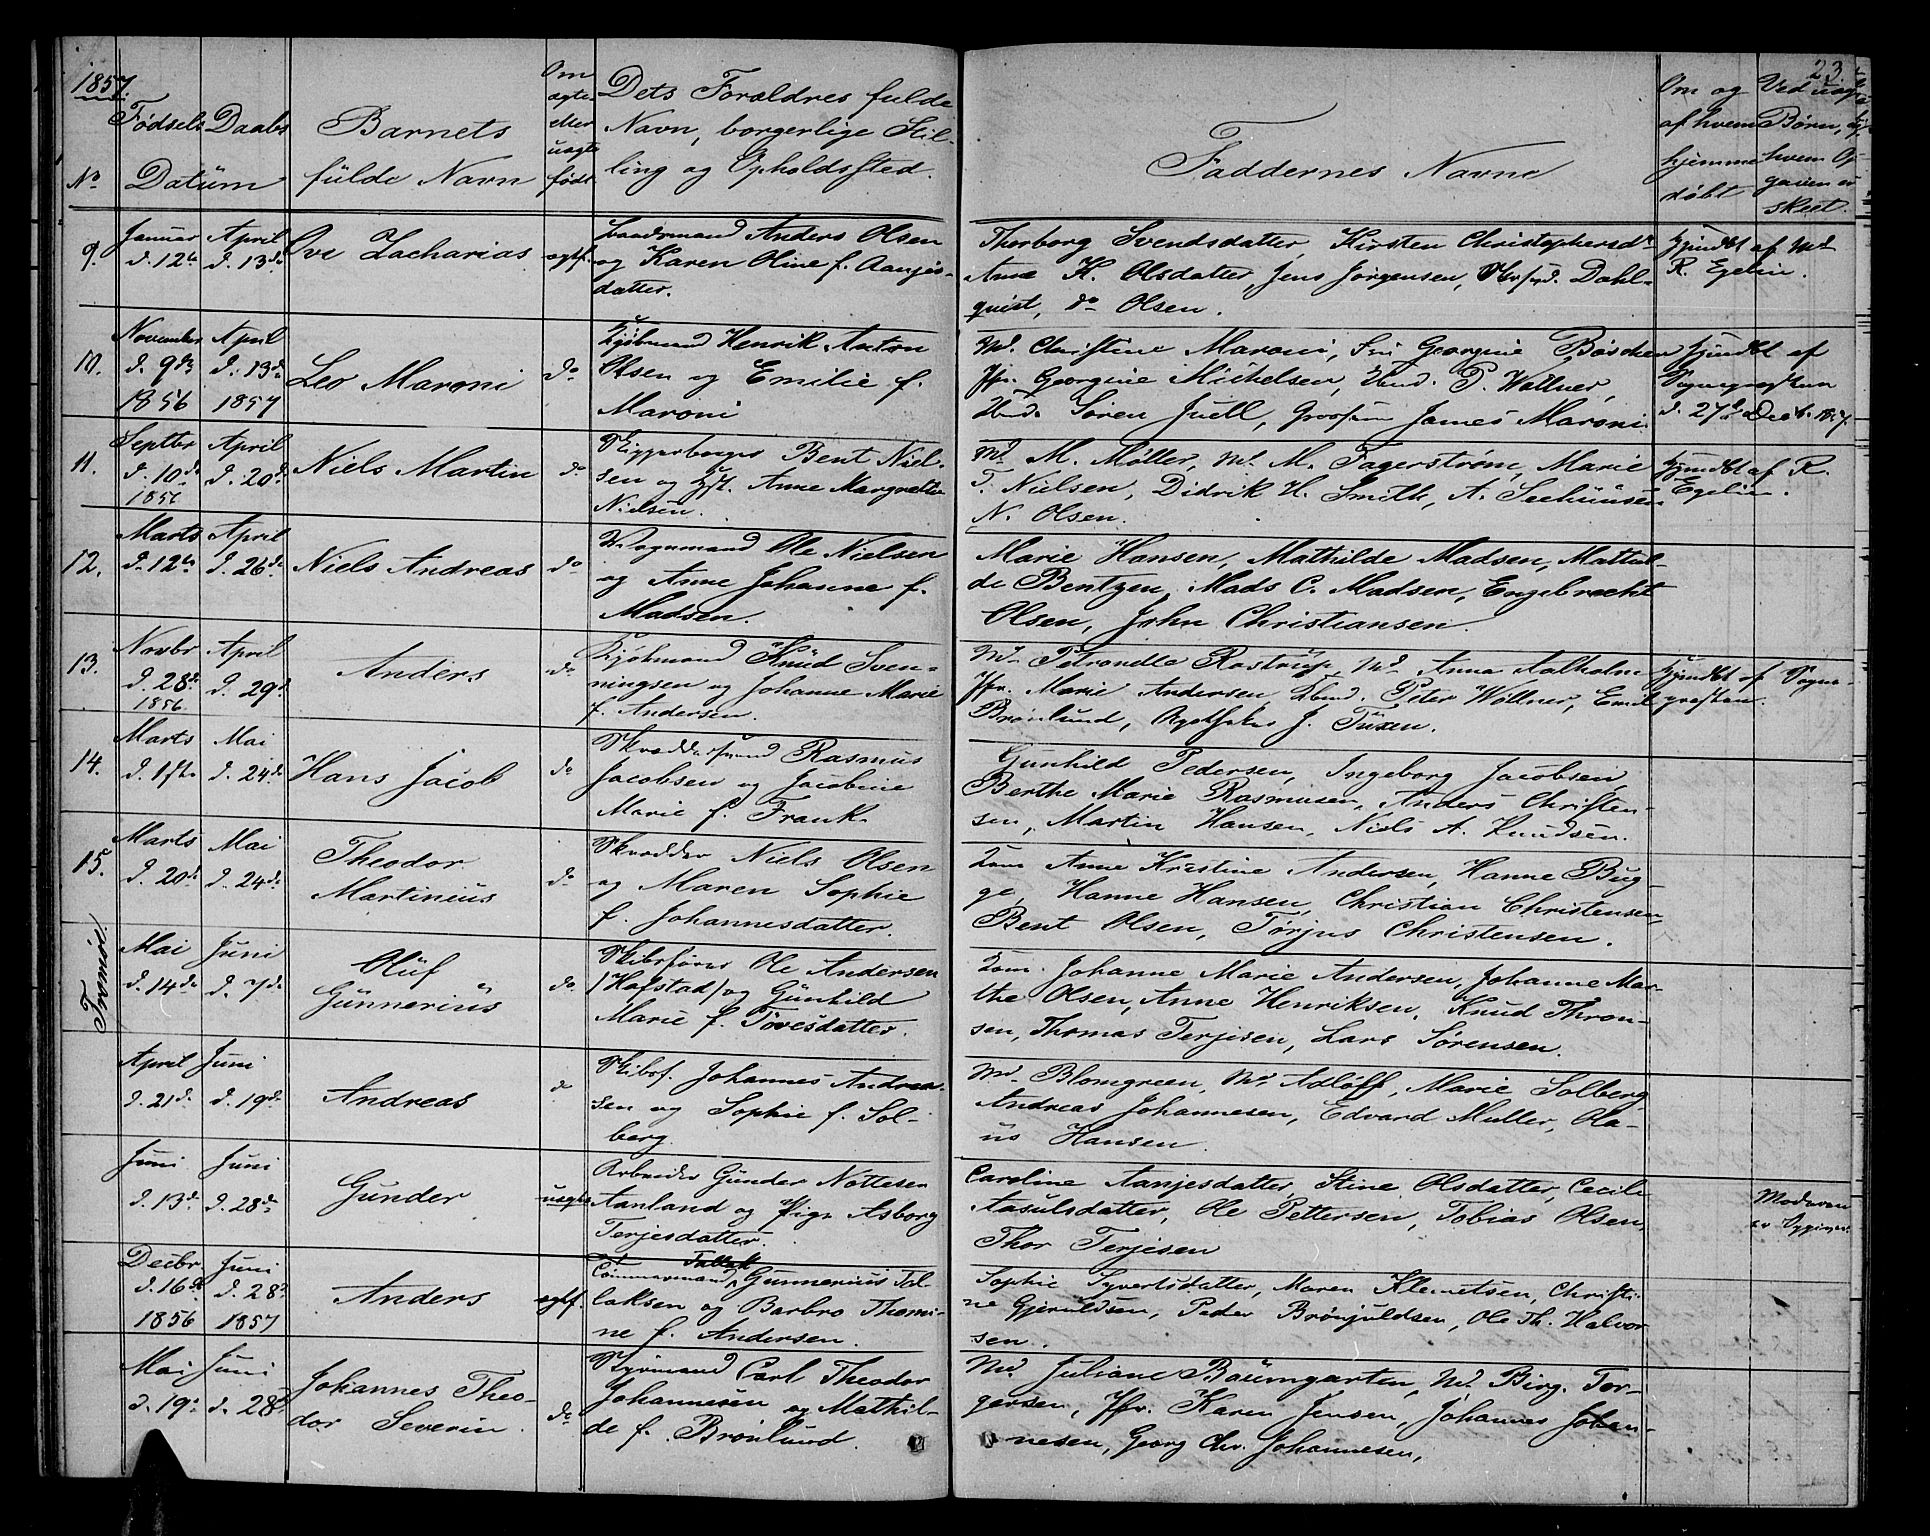 1857.
23.
Fødsels Daabs
Datum
No
Barnets
fulde Navn
Om
ægte
eller
uægte
født
Dets Forældres fulde
Navn, borgerlige Stil-
ling og Opholdssted.
Faddernes Navne
Om og
af hvem
hjemme
døbt
Ved uægte
Børn,
hvem Op-
gaven er
skeet.
9.
Januar April
d. 12te d. 13de
Ove Zacharias
ægtf.
Anders Olsen
og Karen Oline f. Aanjes-
datter.
Thorborg Svendsdatter, Kirsten Christophersdr
Anne K. Olsdatter, Jens Jörgensen, Dahl-
quist, do Olsen.
hjmdbt af Md
R. Egelin.
10.
November April
d. 9de d. 13de
1856 1857
Leo Maroni
do
Kjøbmand Henrik Anton
Olsen og Emilie f.
Maroni
Md. Christine Maroni, Fru Georgine Böschen
Jfr. Georgine Michelsen, P. Wallner,
Sören Juell, James Maroni.
hjmdbt af
Sognepresten
d. 27de Decb.
11.
Septbr April
d. 10de d. 20de
1856
Niels Martin
do
Skipperborger Bent Niel-
sen og Hst. Anne Margrethe
Nielsen.
Md. M. Møller, Md. M. Fagerstrøm, Marie
T. Nielsen, Didrik H. Smith, A. Seehuusen
N. Olsen.
hjmdbt af R.
Egelin.
12.
Marts April
d. 12te d. 26de
Niels Andreas
do
Vognmand Ole Nielsen
og Anne Johanne f.
Madsen.
Marie Hansen, Mathilde Madsen, Mathil-
de Bentzen, Mads C. Madsen, Engebrecht
Olsen, John Christiansen.
13.
Novbr April
d. 28de d. 29de
1856
Anders
do
Kjøbmand Knud Sven-
ningsen og Johanne Marie
f. Andersen.
Md. Petronelle Rostrup, Md. Anna Aalholm
Jfr. Marie Andersen Peter Wöllner, Emil
Brønlund, Apotheker J. Tuxen.
hjmdbt af Sogne-
presten.
14.
Marts Mai
d. 1ste d. 24de
Hans Jacob
do
Skreddersvend Rasmus
Jacobsen og Jacobine
Marie f. Frank.
Gunhild Pedersen, Ingeborg Jacobsen,
Berthe Marie Rasmusen, Anders Christen-
sen, Martin Hansen, Niels A. Knudsen.
15.
Marts Mai
d. 20de d. 24de
Theodor
Martinius
do
Skredder Niels Olsen
og Maren Sophie
f. Johannesdatter.
Anne Kristine Andersen, Hanne Bug-
ge, Hanne Hansen, Christian Christensen,
Bent Olsen, Tørjus Christensen.
Tromøe.
Mai Juni
d. 14de d. 7de
Oluf
Gunnerius
do
Skibsfører Ole Andersen
/Hofstad/ og Gunhild
Marie f. Tovesdatter.
Johanne Marie Andersen, Johanne Mar-
the Olsen, Anne Henriksen, Knud Thron-
sen, Thomas Terjesen, Lars Sørensen.
April Juni
d. 21de d. 19de
Andreas
do
Skibsf. Johannes Andrea-
sen og Sophie f. Sol-
berg.
Md. Blomgreen, Md. Adloff, Marie Solberg,
Andreas Johannesen, Edvard Muller, Ola-
us Hansen.
Juni Juni
d. 13de d. 28de
Gunder
uægte
Arbeider Gunder Nottesen
Aanland og Pige Asborg
Terjesdatter.
Caroline Aanjesdatter, Stine Olsdatter, Cecilie
Aasulsdatter, Ole Pettersen, Tobias Olsen,
Thor Terjesen
Moderen
er Opgiver.
Decbr Juni
d. 16de d. 28de
1856 1857
Anders
ægtf.
Tømmermand Tallak Gunnerius Tal-
laksen og Barbro Thomi-
ne f. Andersen.
Sophie Syvertsdatter, Maren Klemetsen, Christi-
ne Gjeruldsen, Peder Brønjuldsen, Ole Th. Halvor-
sen.
Mai Juni
d. 19de d. 28de
Johannes Theo-
dor Severin
do
Styrmand Carl Theodor
Johannesen og Mathil-
de f. Brønlund.
Md. Juliane Baumgarten, Md. Birg. Tor-
gersen, Jfr. Karen Jensen, Johannes Johan-
nesen, Georg Chr. Johannesen,